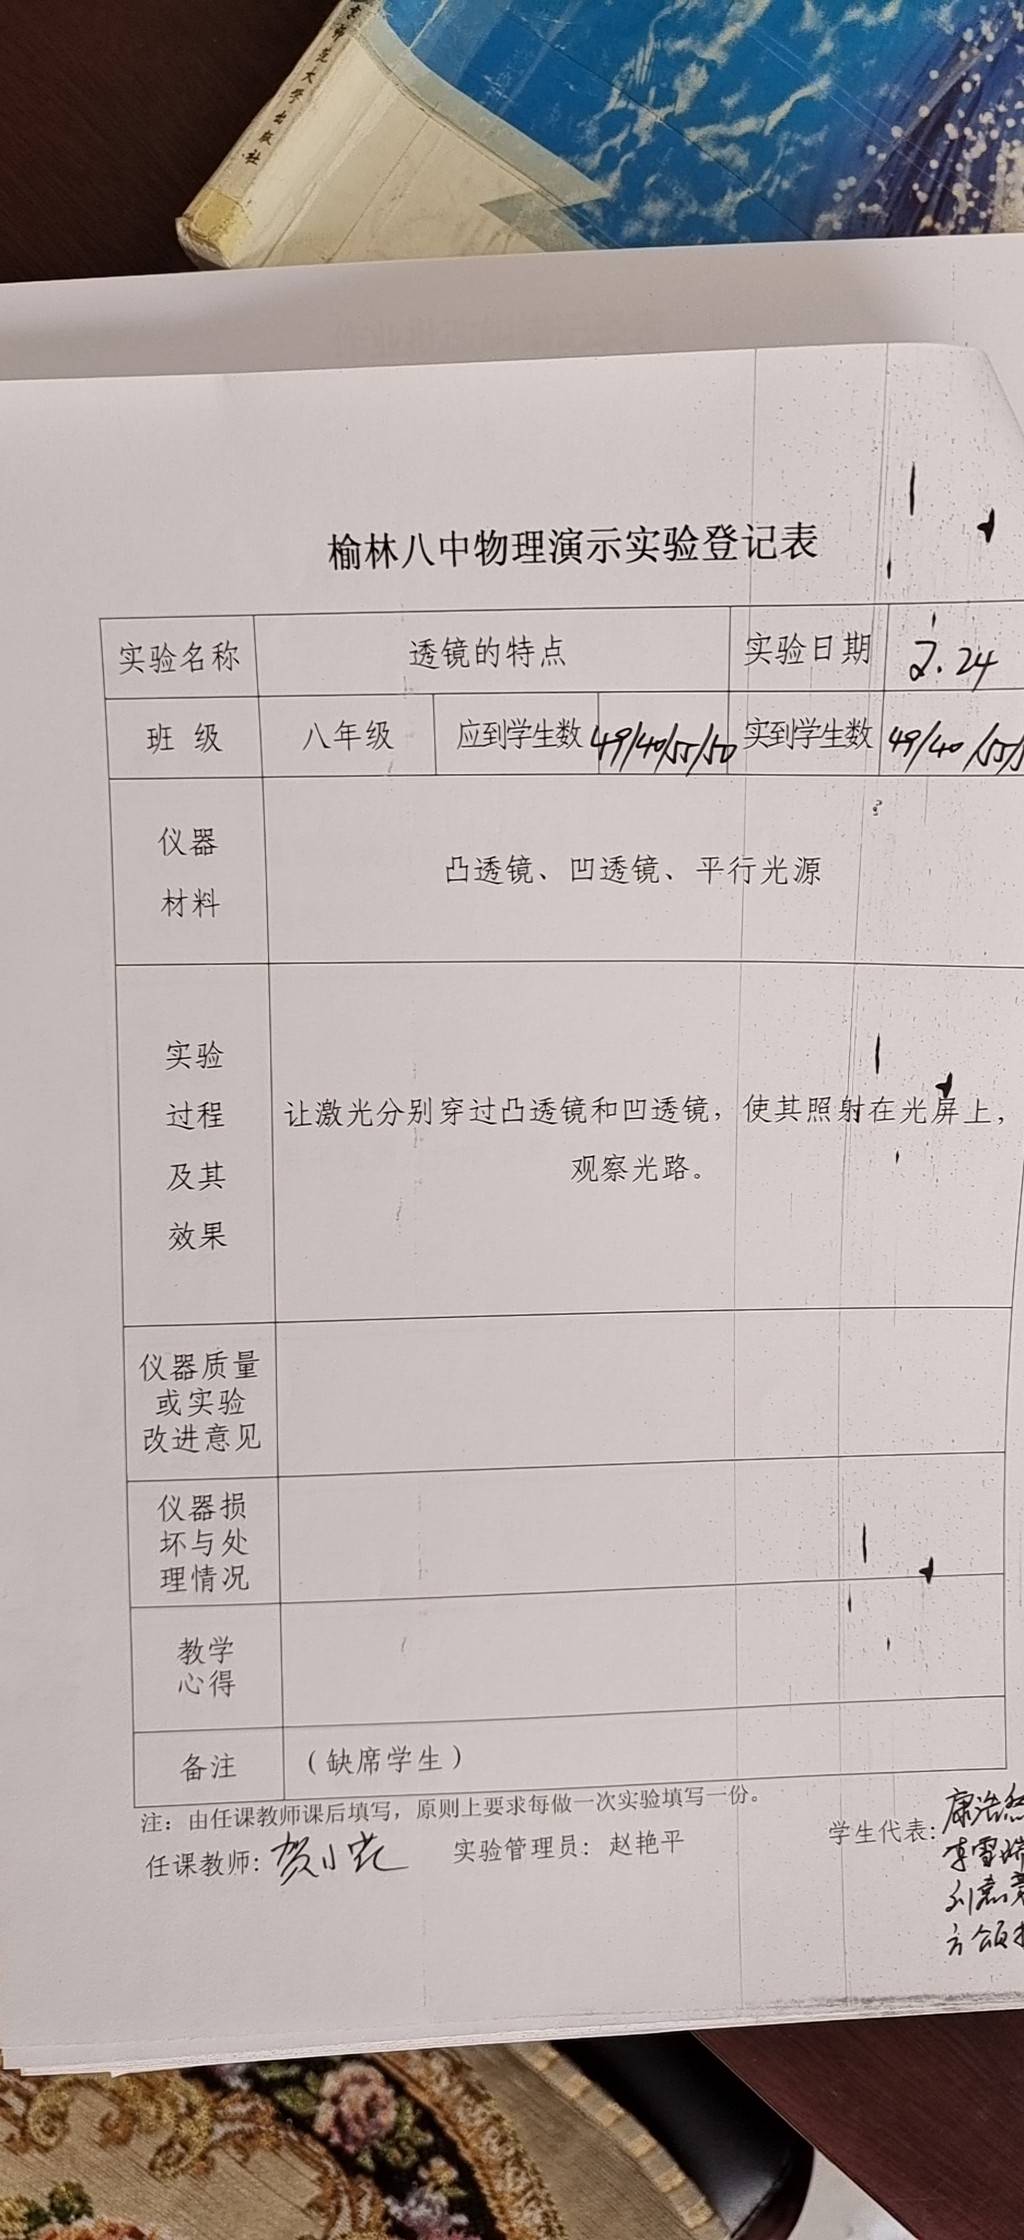 大学出版社
榆林八中物理演示实验登记表
实验名称 透镜的特点 实验日期 2.24
班 级 八年级 应到学生数 49/40/55/50 实到学生数 49/40/55/
仪器
材料
凸透镜、凹透镜、平行光源
实验
过程
及其
效果
让激光分别穿过凸透镜和凹透镜，使其照射在光屏上，
观察光路。
仪器质量
或实验
改进意见
仪器损
坏与处
理情况
教学
心得
备注 （缺席学生）
注：由任课教师课后填写，原则上要求每做一次实验填写一份。
任课教师: 贺小花 实验管理员：赵艳平 学生代表:
康浩
李雪瑞
刘嘉
方颂